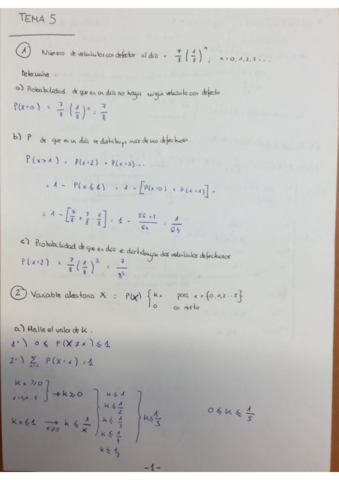 TEMA 5
① Número de vehículos con defectos al día = 7/8 (1/8)^x ; x = 0, 1, 2, 3 ...
Determine:
a) Probabilidad de que en un día no haya ningún vehículo con defecto.
P(x=0) = 7/8 (1/8)^0 = 7/8
b) P de que en un día se distribuya más de uno defectuoso.
P(x>1) = P(x=2) + P(x=3) ...
= 1 - P(x≤1) = 1 - [P(x=0) + P(x=1)] =
= 1 - [7/8 + 7/8 · 1/8] = 1 - = 1/64
c) Probabilidad de que en un día se distribuyan dos vehículos defectuosos
P(x=2) = 7/8 (1/8)^2 = 7/8^3
② Variable aleatoria X : P(X) { kx para x = {0, 1, 2 .. 5}
0 en resto
a) Halle el valor de K.
1º) 0 ≤ P(X=x) ≤ 1
2º) Σ P(X=x) = 1
kx ≥ 0 → k ≥ 0
kx ≤ 1 → k ≤ 1/x
k ≤ 1
k ≤ 1/2
k ≤ 1/3
k ≤ 1/4
k ≤ 1/5
k ≤ 1/5
0 ≤ k ≤ 1/5
-1-